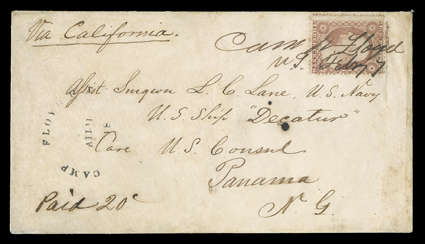 Via California.
Camp Floyd
U.T. Feby 7
Asst Surgeon L. C. Lane U.S. Navy
U.S. Ship "Decatur"
Care U.S. Consul
Panama
N G.
CAMP FLOY
UTAH
Paid 20c